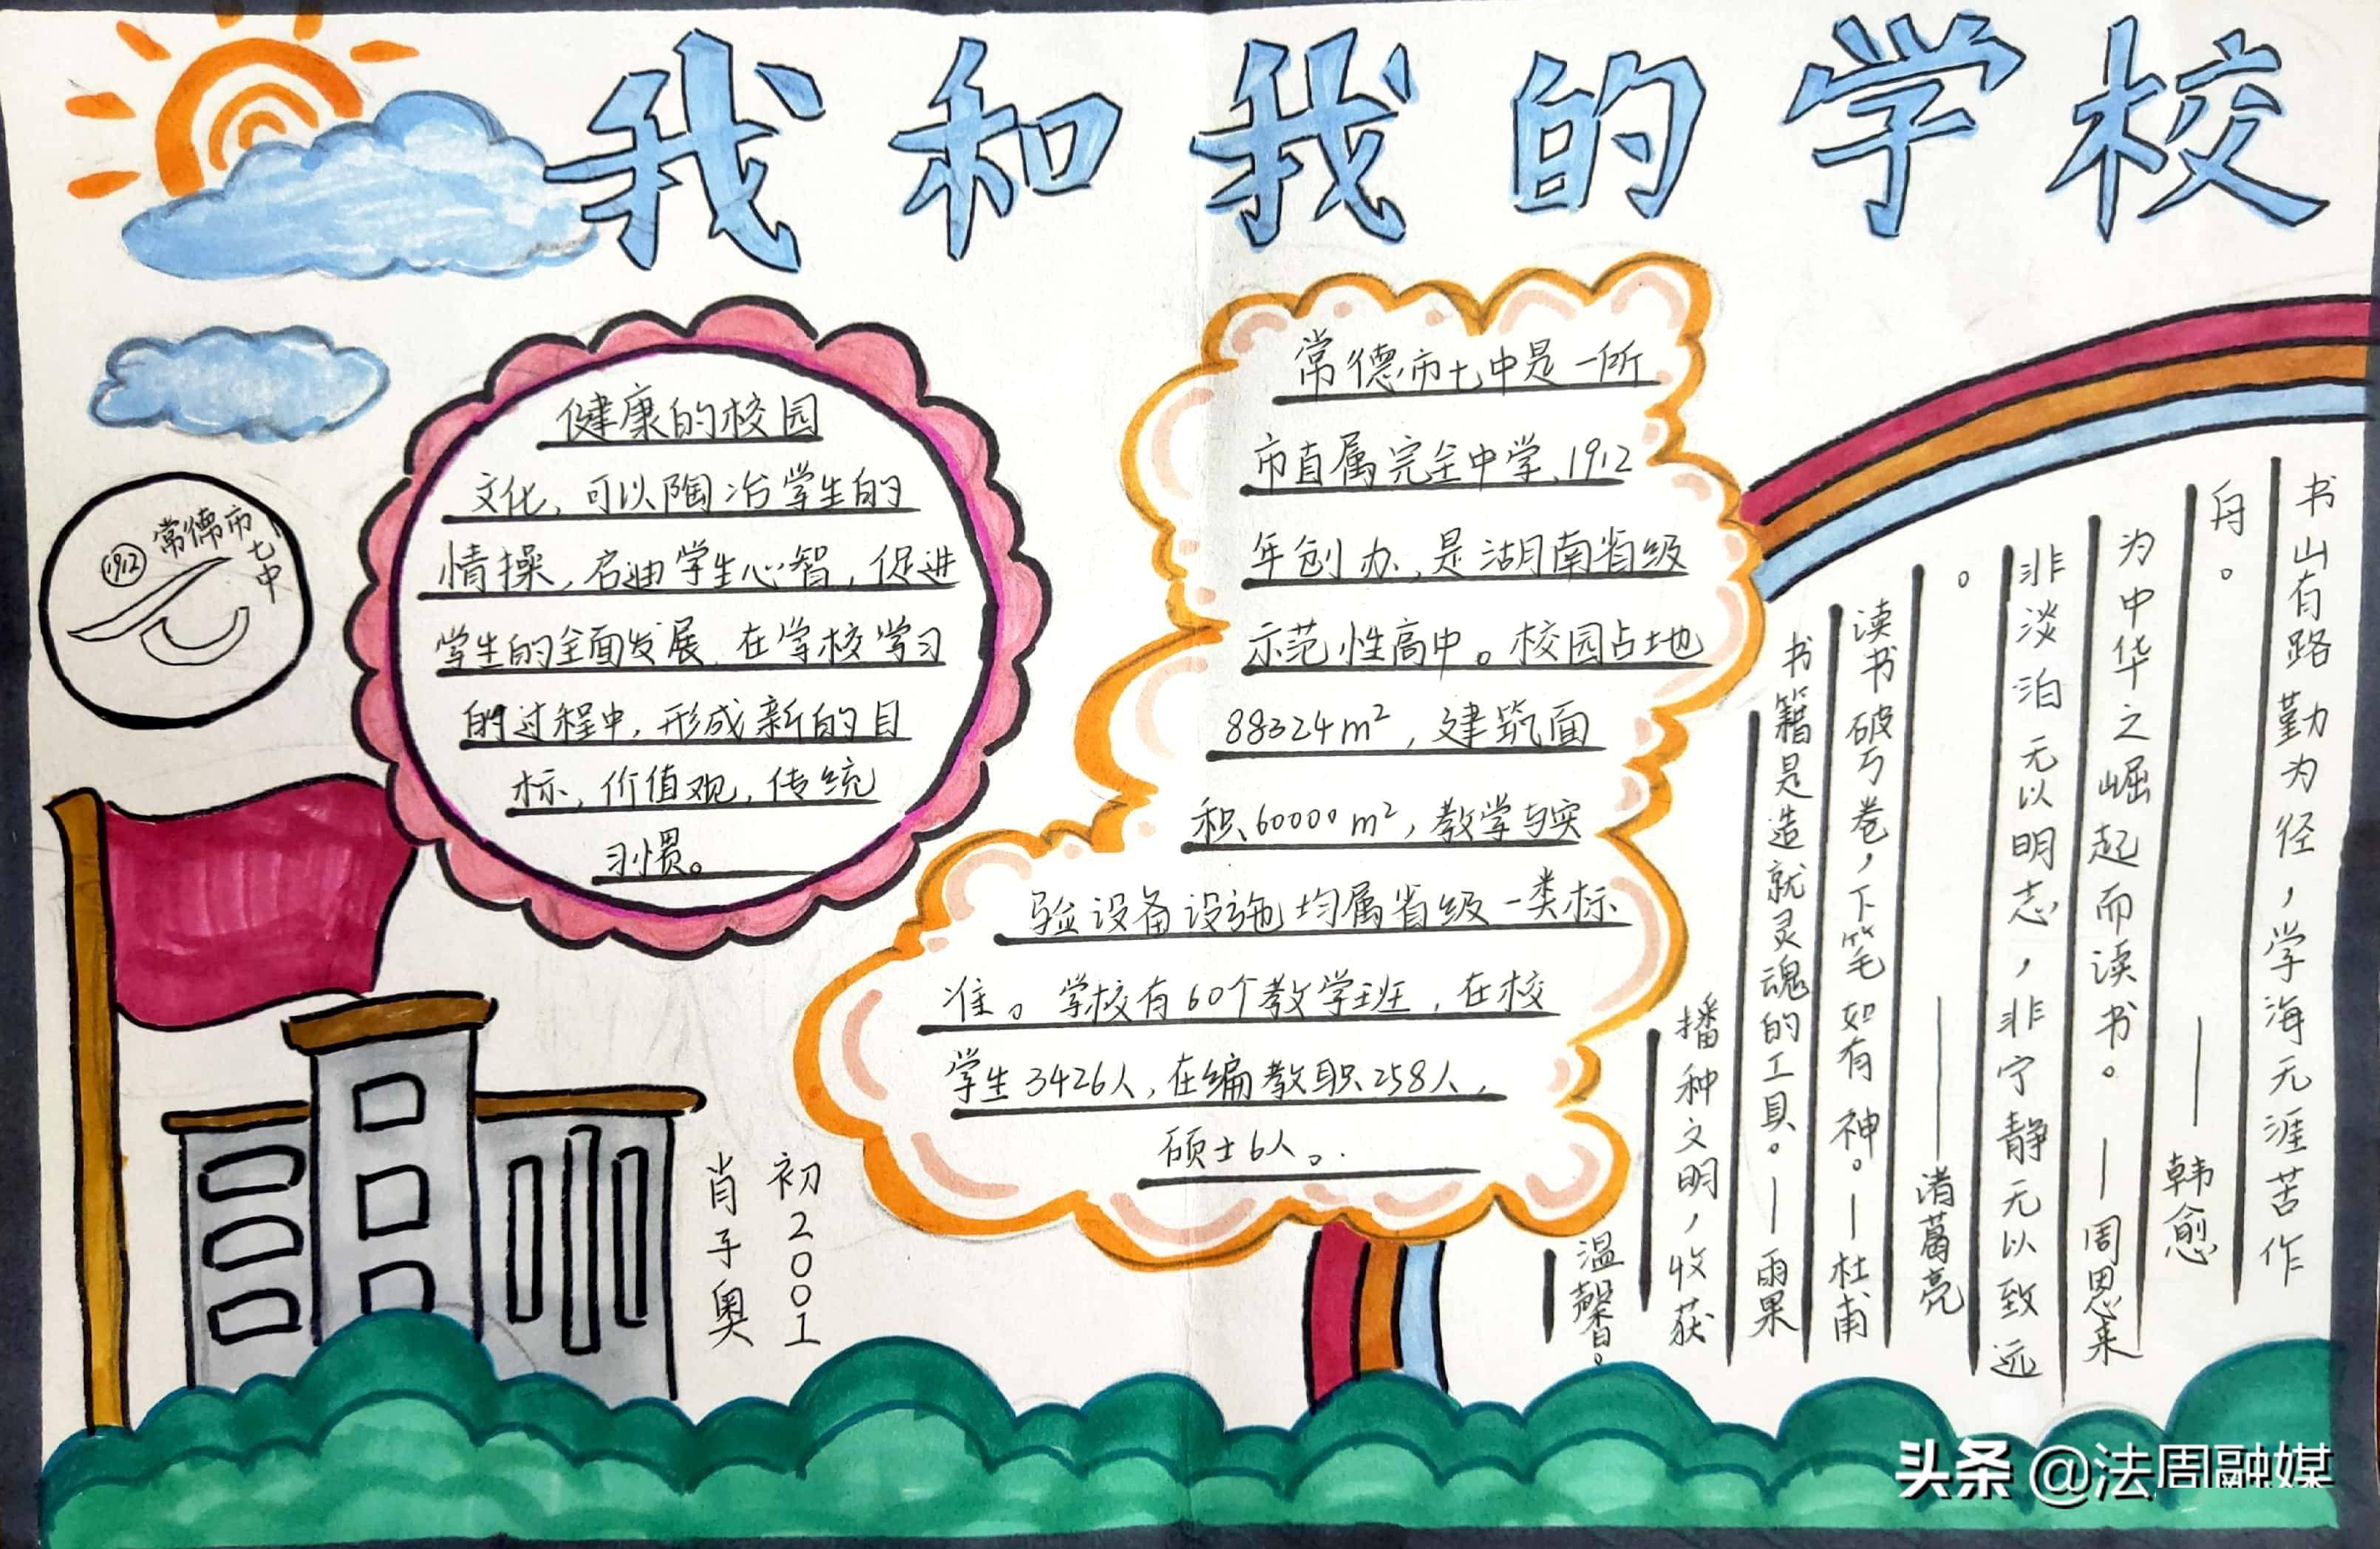 我和我的学校
健康的校园
文化，可以陶冶学生的
情操，启迪学生心智，促进
学生的全面发展，在学校学习
的过程中，形成新的目
标，价值观，传统
习惯。
常德市七中
1912
常德市七中是一所
市直属完全中学、1912
年创办，是湖南省级
示范性高中。校园占地
88324m²，建筑面
积60000m²，教学与实
验设备设施均属省级一类标
准。学校有60个教学班，在校
学生3426人，在编教职258人，
硕士6人。
书山有路勤为径，学海无涯苦作
舟。——韩愈
为中华之崛起而读书。—周恩来
非淡泊无以明志，非宁静无以致远
。——渚葛亮
读书破万卷，下笔如有神。—杜甫
书籍是造就灵魂的工具。—雨果
播种文明，收获
温馨。
初2001
肖子奥
头条 @法周融媒